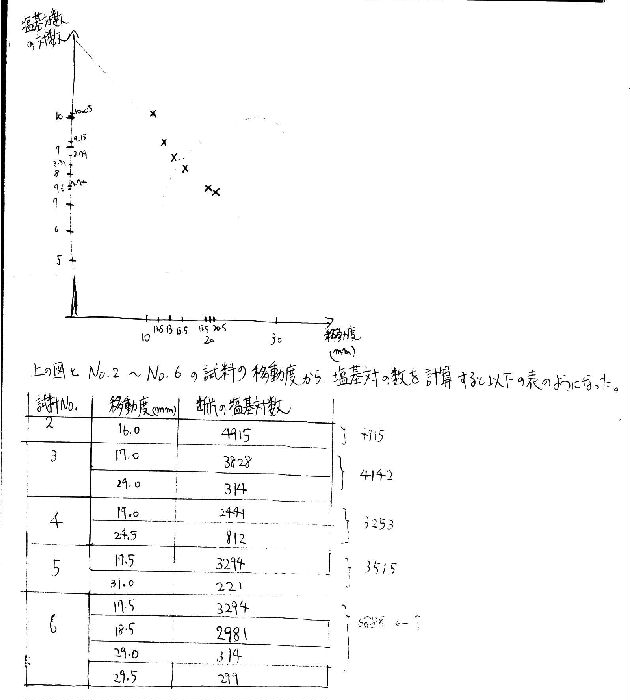 塩基対数
の対数
10
10.05
9.15
9
8
7
6
5
10
13
16.5
20
20.5
30
移動度
(mm)
上の図と No.2 ~ No.6 の試料の移動度から 塩基対の数を計算すると以下の表のようになった。
試料No. 移動度(mm) 断片の塩基対数
2 16.0 4915 } 4915
3 17.0 3828
29.0 314 } 4142
4 19.0 2441
24.5 812 } 3253
5 17.5 3294
31.0 221 } 3515
6 17.5 3294
18.5 2981
29.0 314
29.5 299